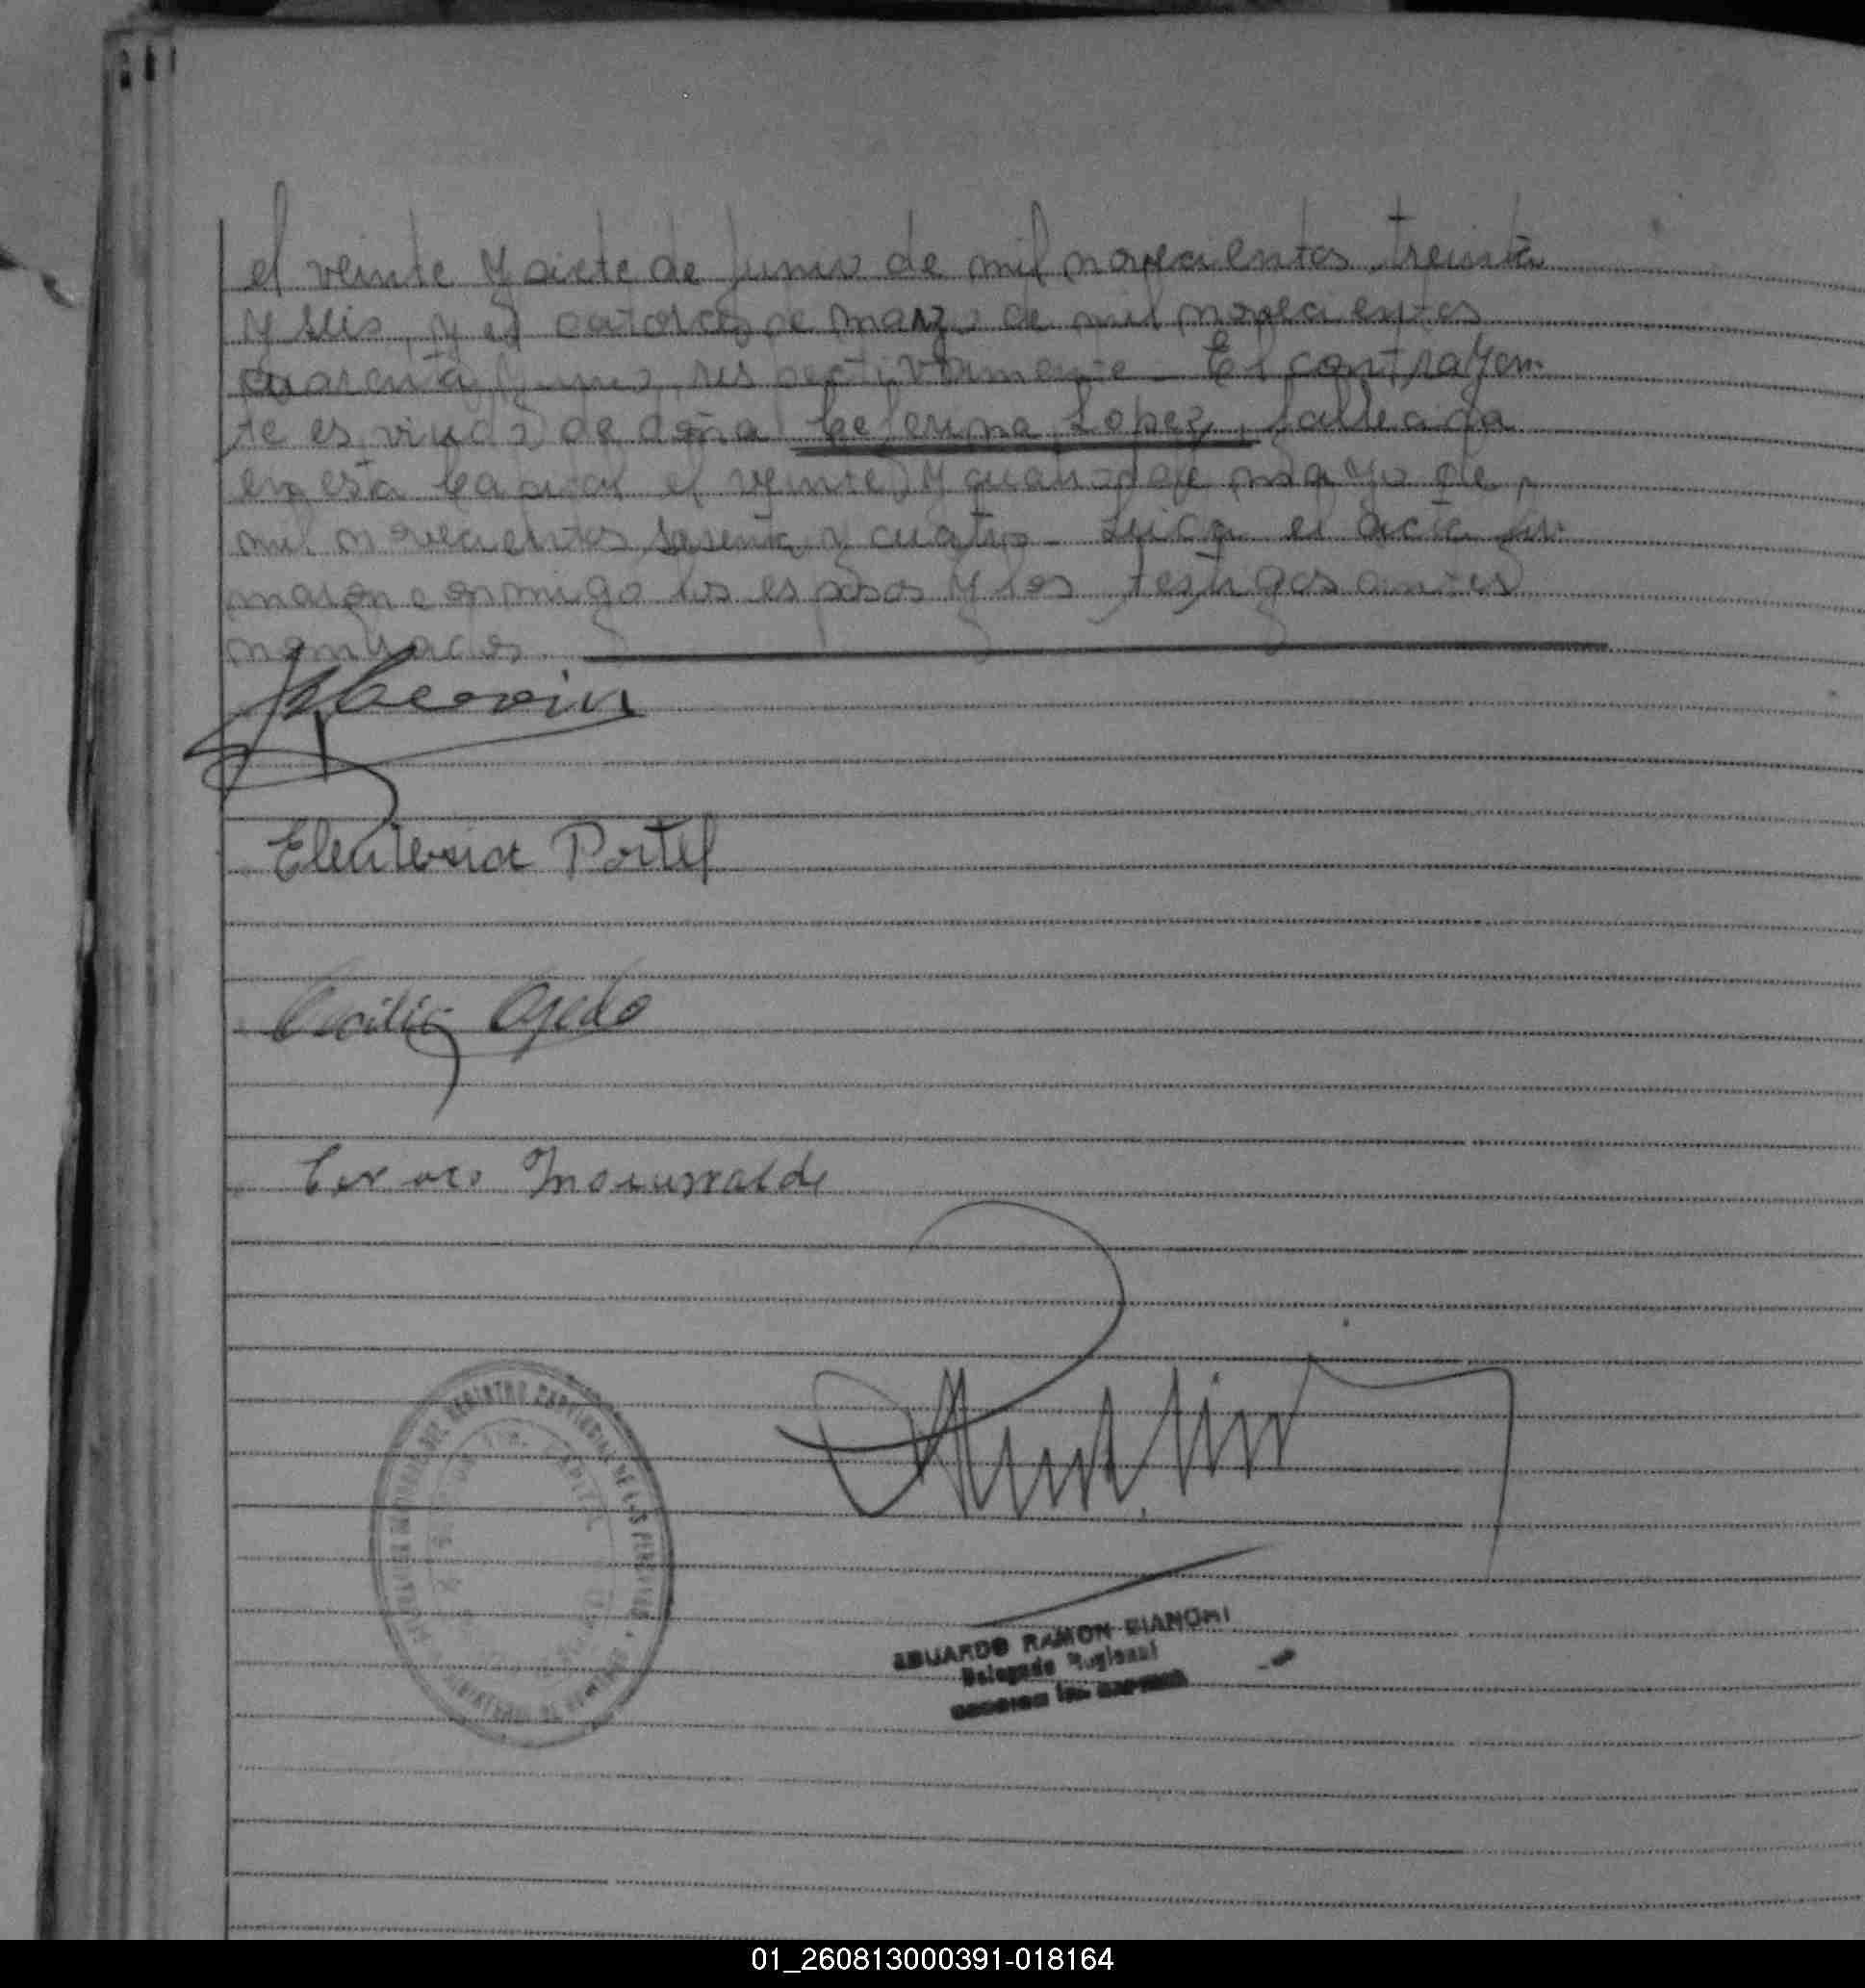 el veinte y siete de Junio de mil novecientos treinta
y seis, y el catorce de marzo de mil novecientos
cuarenta y uno, respectivamente - El contrayen-
te es viudo de doña Ceferina Lopez, fallecida
en esta Capital el veinte y cuatro de mayo de
mil novecientos sesenta y cuatro - Leida el acta fir-
maron conmigo los esposos y los testigos antes
nombrados.
Eleuteria Portel
Cecilia Ojeda
Insaurralde
EDUARDO RAMON BIANCHI
Delegado Regional
01_260813000391-018164